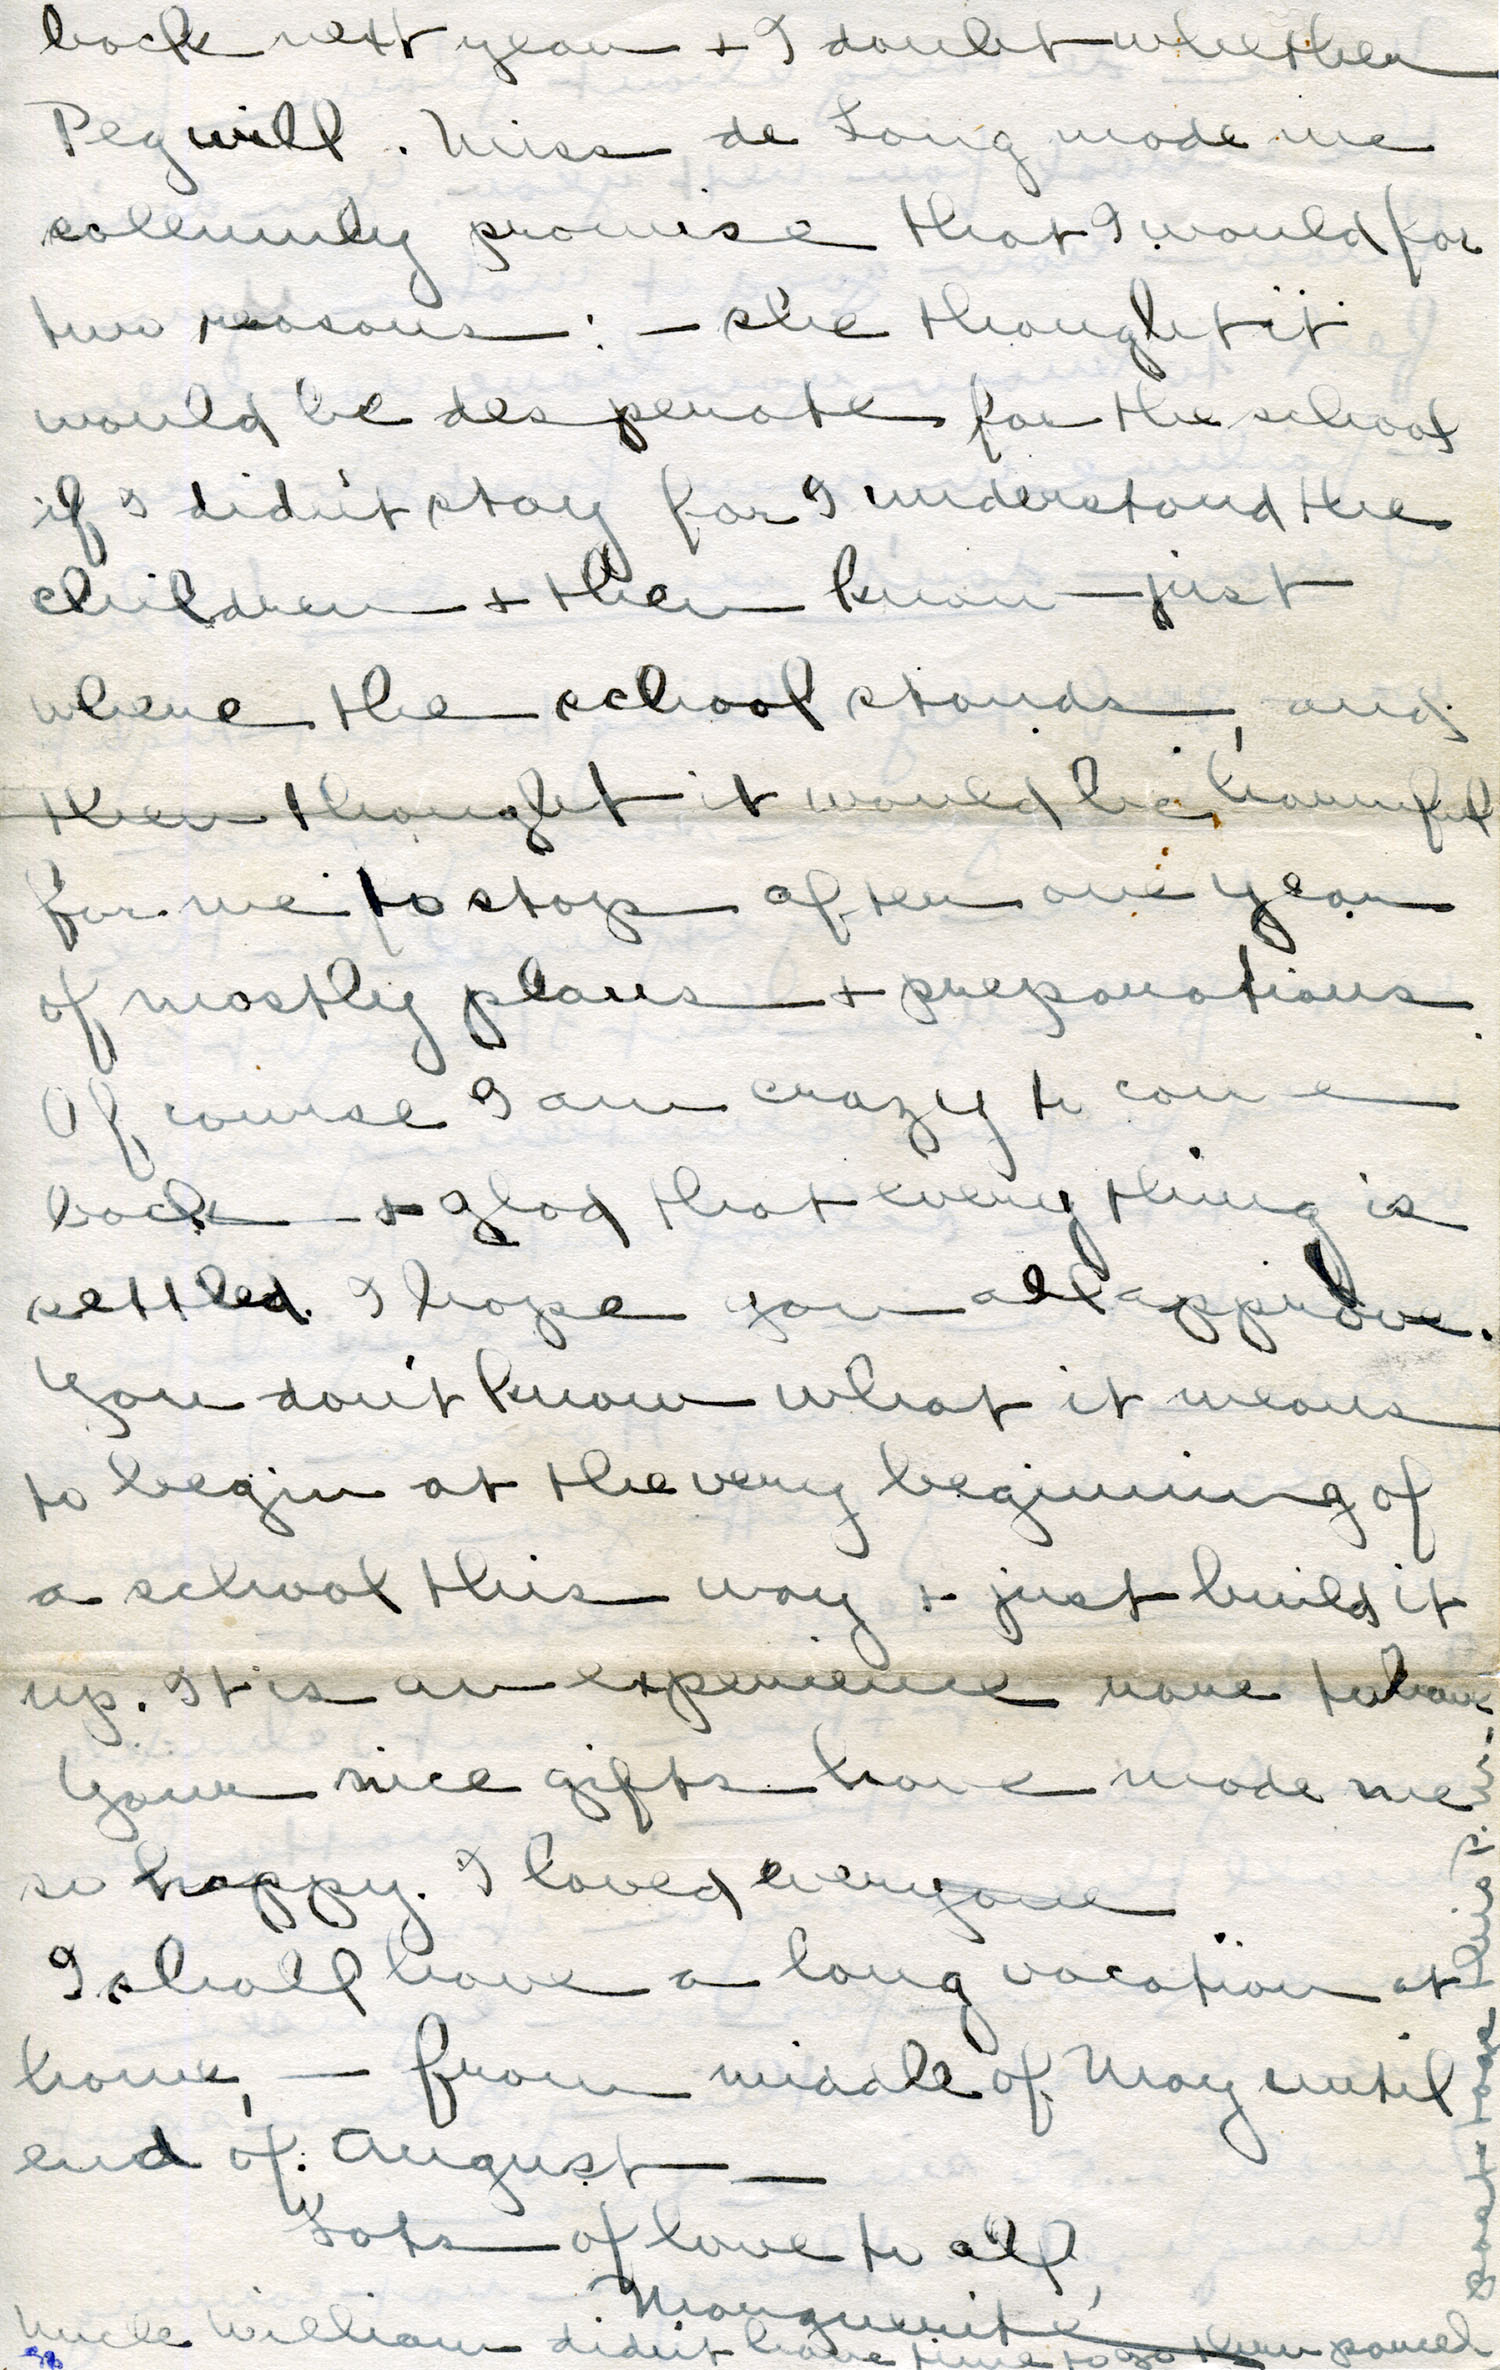 back next year + I doubt whether
Peg will. Miss de Long made me
solemnly promise that I would for
two reasons: – she thought it
would be desperate for the school
if I didn't stay for I understand the
children + then know just
where the school stands, and
then thought it would be harmful
for me to stop after one year
of mostly plans + preparations.
Of course I am crazy to come
back + glad that everything is
settled. I hope you all approve.
You don't know what it means
to begin at the very beginning of
a school this way + just build it
up. It is an experience rare to have
Your nice gifts have made me
so happy. I loved everyone.
I shall have a long vacation at
home, – from middle of May until
end of August –
Lots of love to all,
Marguerite
Uncle William didn't have time to go thru parcel
post too this P.M.